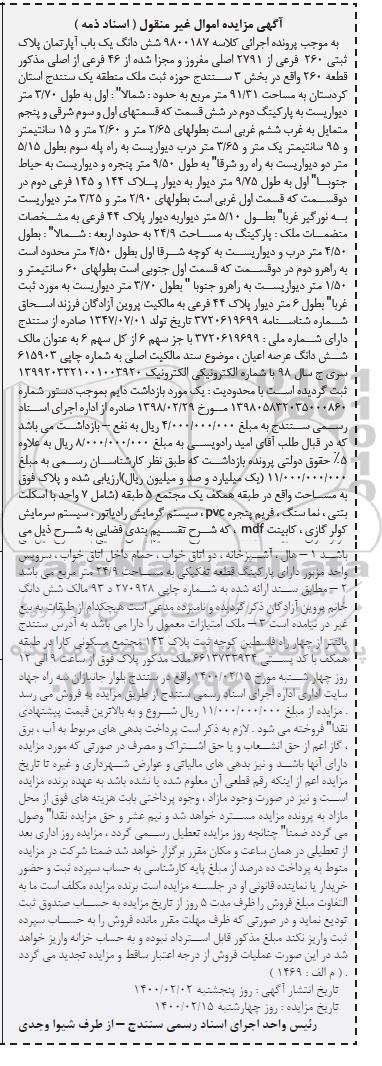 آگهی مزایده اموال غیر منقول ( اسناد ذمه )
به موجب پرونده اجرائی کلاسه ۹۸۰۰۱۸۷ شش دانگ یک باب آپارتمان پلاک
ثبتی ۲۶۰ فرعی از ۲۷۹۱ اصلی مفروز و مجزا شده از ۴۶ فرعی از اصلی مذکور
قطعه ۲۶۰ واقع در بخش ۳ سنندج حوزه ثبت ملک منطقه یک سنندج استان
کردستان به مساحت ۹۱/۳۱ متر مربع به حدود : شمالا" : اول به طول ۳/۷۰ متر
دیواریست به پارکینگ دوم در شش قسمت که قسمتهای اول و سوم شرقی و پنجم
متمایل به غرب ششم غربی است بطولهای ۲/۶۵ متر و ۲/۶۰ متر و ۱۵ سانتیمتر
و ۹۵ سانتیمتر یک متر و ۳/۶۵ متر درب دیواریست به راه پله سوم بطول ۵/۱۵
متر دو دیواریست به راه رو شرقا" به طول ۹/۵۰ متر پنجره و دیواریست به حیاط
جنوبا" اول به طول ۹/۷۵ متر دیوار به دیوار پلاک ۱۴۴ و ۱۴۵ فرعی دوم در
دوقسمت که قسمت اول غربی است بطولهای ۲/۹۰ متر و ۳/۲۵ متر دیواریست
به نورگیر غربا" بطول ۵/۱۰ متر دیواربه دیوار پلاک ۴۴ فرعی به مشخصات
منضمات ملک : پارکینگ به مساحت ۲۴/۹ به حدود اربعه : شمالا" : بطول
۴/۵۰ متر درب و دیواریست به کوچه شرقا اول بطول ۴/۵۰ متر محدود است
به راهرو دوم در دوقسمت که قسمت اول جنوبی است بطولهای ۶۰ سانتیمتر و
۱/۵۰ متر دیواریست به راهرو جنوبا " بطول ۳/۷۰ متر دیواریست به مورد ثبت
غربا" بطول ۶ متر دیوار پلاک ۴۴ فرعی به مالکیت پروین آزادگان فرزند اسحاق
شماره شناسنامه ۳۷۲۰۶۱۹۶۹۹ تاریخ تولد ۱۳۴۷/۰۷/۰۱ صادره از سنندج
دارای شماره ملی : ۳۷۲۰۶۱۹۶۹۹ با جز سهم ۶ از کل سهم ۶ به عنوان مالک
شش دانگ عرصه اعیان ، موضوع سند مالکیت اصلی به شماره چاپی ۶۱۵۹۰۳
سری ج سال ۹۸ با شماره الکترونیکی الکترونیک ۱۳۹۹۲۰۳۳۲۱۰۰۱۰۰۳۹۲۰
ثبت گردیده است با محدودیت : یک مورد بازداشت دایم بموجب دستور شماره
۱۳۹۸۰۵۸۳۲۰۳۵۰۰۰۸۶۰ مورخ ۱۳۹۸/۰۲/۲۹ صادره از اداره اجرای اسناد
رسمی سنندج به مبلغ ۴/۰۰۰/۰۰۰/۰۰۰ ریال به نفع – بازداشت می باشد
که در قبال طلب آقای امید رادویسی به مبلغ ۸/۰۰۰/۰۰۰/۰۰۰ ریال به علاوه
۵٪ حقوق دولتی پرونده بازداشت که طبق نظر کارشناسان رسمی به مبلغ
۱۱/۰۰۰/۰۰۰/۰۰۰ (یک میلیارد و صد و میلیون ریال)ارزیابی شده و پلاک فوق
به مساحت واقع در طبقه همکف یک مجتمع ۵ طبقه (شامل ۷ واحد با اسکلت
بتنی ، نما سنگ ، فریم پنجره pvc ، سیستم گرمایش رادیاتور ، سیستم سرمایش
کولر گازی ، کابینت mdf ، که شرح تقسیم بندی فضایی به شرح ذیل می
باشد ۱ – هال ، آشپزخانه ، دو اتاق خواب ، حمام داخل اتاق خواب ، سرویس
واحد مزبور دارای پارکینگ قطعه تفکیکی به مساحت ۲۴/۹ متر مربع می باشد
۲ – مطابق سند ارائه شده به شماره چاپی ۲۷۰۹۲۸ د ۹۳ مالک شش دانگ
خانم پروین آزادگان ذکر گردیده ونامبرده مدعی است هیچکدام از طبقات به بیع
غیر در نیامده است ۳ – ملک امتیازات معمول را دارا می باشد به آدرس سنندج
بالاتر از چهار راه فلسطین کوچه ثبت پلاک ۱۴۳ مجتمع مسکونی کارا در طبقه
همکف با کد پستی ۶۶۱۳۷۳۳۹۳۴ ملک مذکور پلاک فوق از ساعت ۹ الی ۱۲
روز چهار شنبه مورخ ۱۴۰۰/۰۲/۱۵ واقع در سنندج بلوار جانبازان سه راه جهاد
سایت اداری اداره اجرای اسناد رسمی سنندج از طریق مزایده به فروش می رسد
. مزایده از مبلغ ۱۱/۰۰۰/۰۰۰/۰۰۰ ریال شروع و به بالاترین قیمت پیشنهادی
نقدا" فروخته می شود . لازم به ذکر است پرداخت بدهی های مربوط به آب ، برق
، گاز اعم از حق انشعاب و یا حق اشتراک و مصرف در صورتی که مورد مزایده
دارای آنها باشد و نیز بدهی های مالیاتی و عوارض شهرداری و غیره تا تاریخ
مزایده اعم از اینکه رقم قطعی آن معلوم شده یا نشده باشد به عهده برنده مزایده
است و نیز در صورت وجود مازاد ، وجوه پرداختی بابت هزینه های فوق از محل
مازاد به پرونده مزایده مسترد خواهد شد و نیم عشر و حق مزایده نقدا" وصول
می گردد ضمنا" چنانچه روز مزایده تعطیل رسمی گردد ، مزایده روز اداری بعد
از تعطیلی در همان ساعت و مکان مقرر برگزار خواهد شد ضمنا شرکت در مزایده
منوط به پرداخت ده درصد از مبلغ پایه کارشناسی به حساب سپرده ثبت و حضور
خریدار یا نماینده قانونی او در جلسه مزایده است برنده مزایده مکلف است ما به
التفاوت مبلغ فروش را ظرف مدت ۵ روز از تاریخ مزایده به حساب صندوق ثبت
تودیع نماید و در صورتی که ظرف مهلت مقرر مانده فروش را به حساب سپرده
ثبت واریز نکند مبلغ مذکور قابل استرداد نبوده و به حساب خزانه واریز خواهد
شد در این صورت عملیات فروش از درجه اعتبار ساقط و مزایده تجدید می گردد
. ( م الف : ۱۴۶۹ )
تاریخ انتشار آگهی : روز پنجشنبه ۱۴۰۰/۰۲/۰۲
تاریخ مزایده : روز چهارشنبه ۱۴۰۰/۰۲/۱۵
رئیس واحد اجرای اسناد رسمی سنندج – از طرف شیوا وجدی